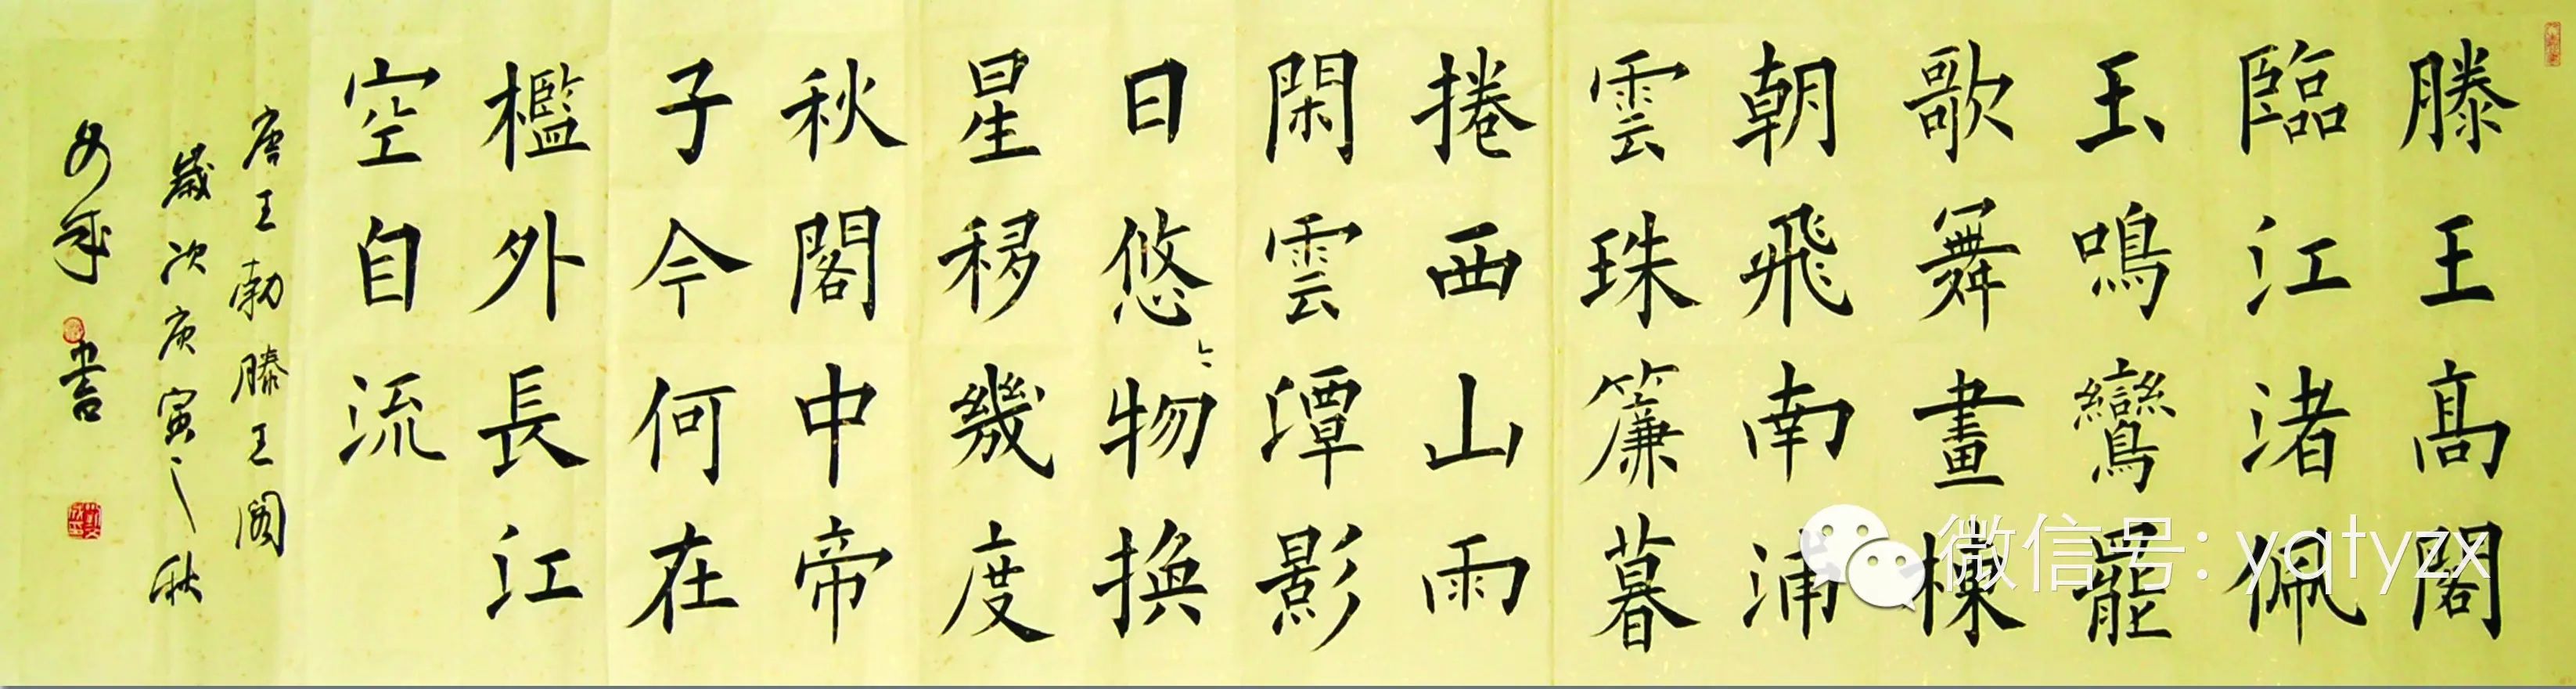 滕王高閣
臨江渚佩
玉鳴鸞罷
歌舞畫棟
朝飛南浦
雲珠簾暮
捲西山雨
閑雲潭影
日悠〻物換
星移幾度
秋閣中帝
子今何在
檻外長江
空自流
唐王勃滕王阁
歲次庚寅之秋
書
微信号: yqtyzx